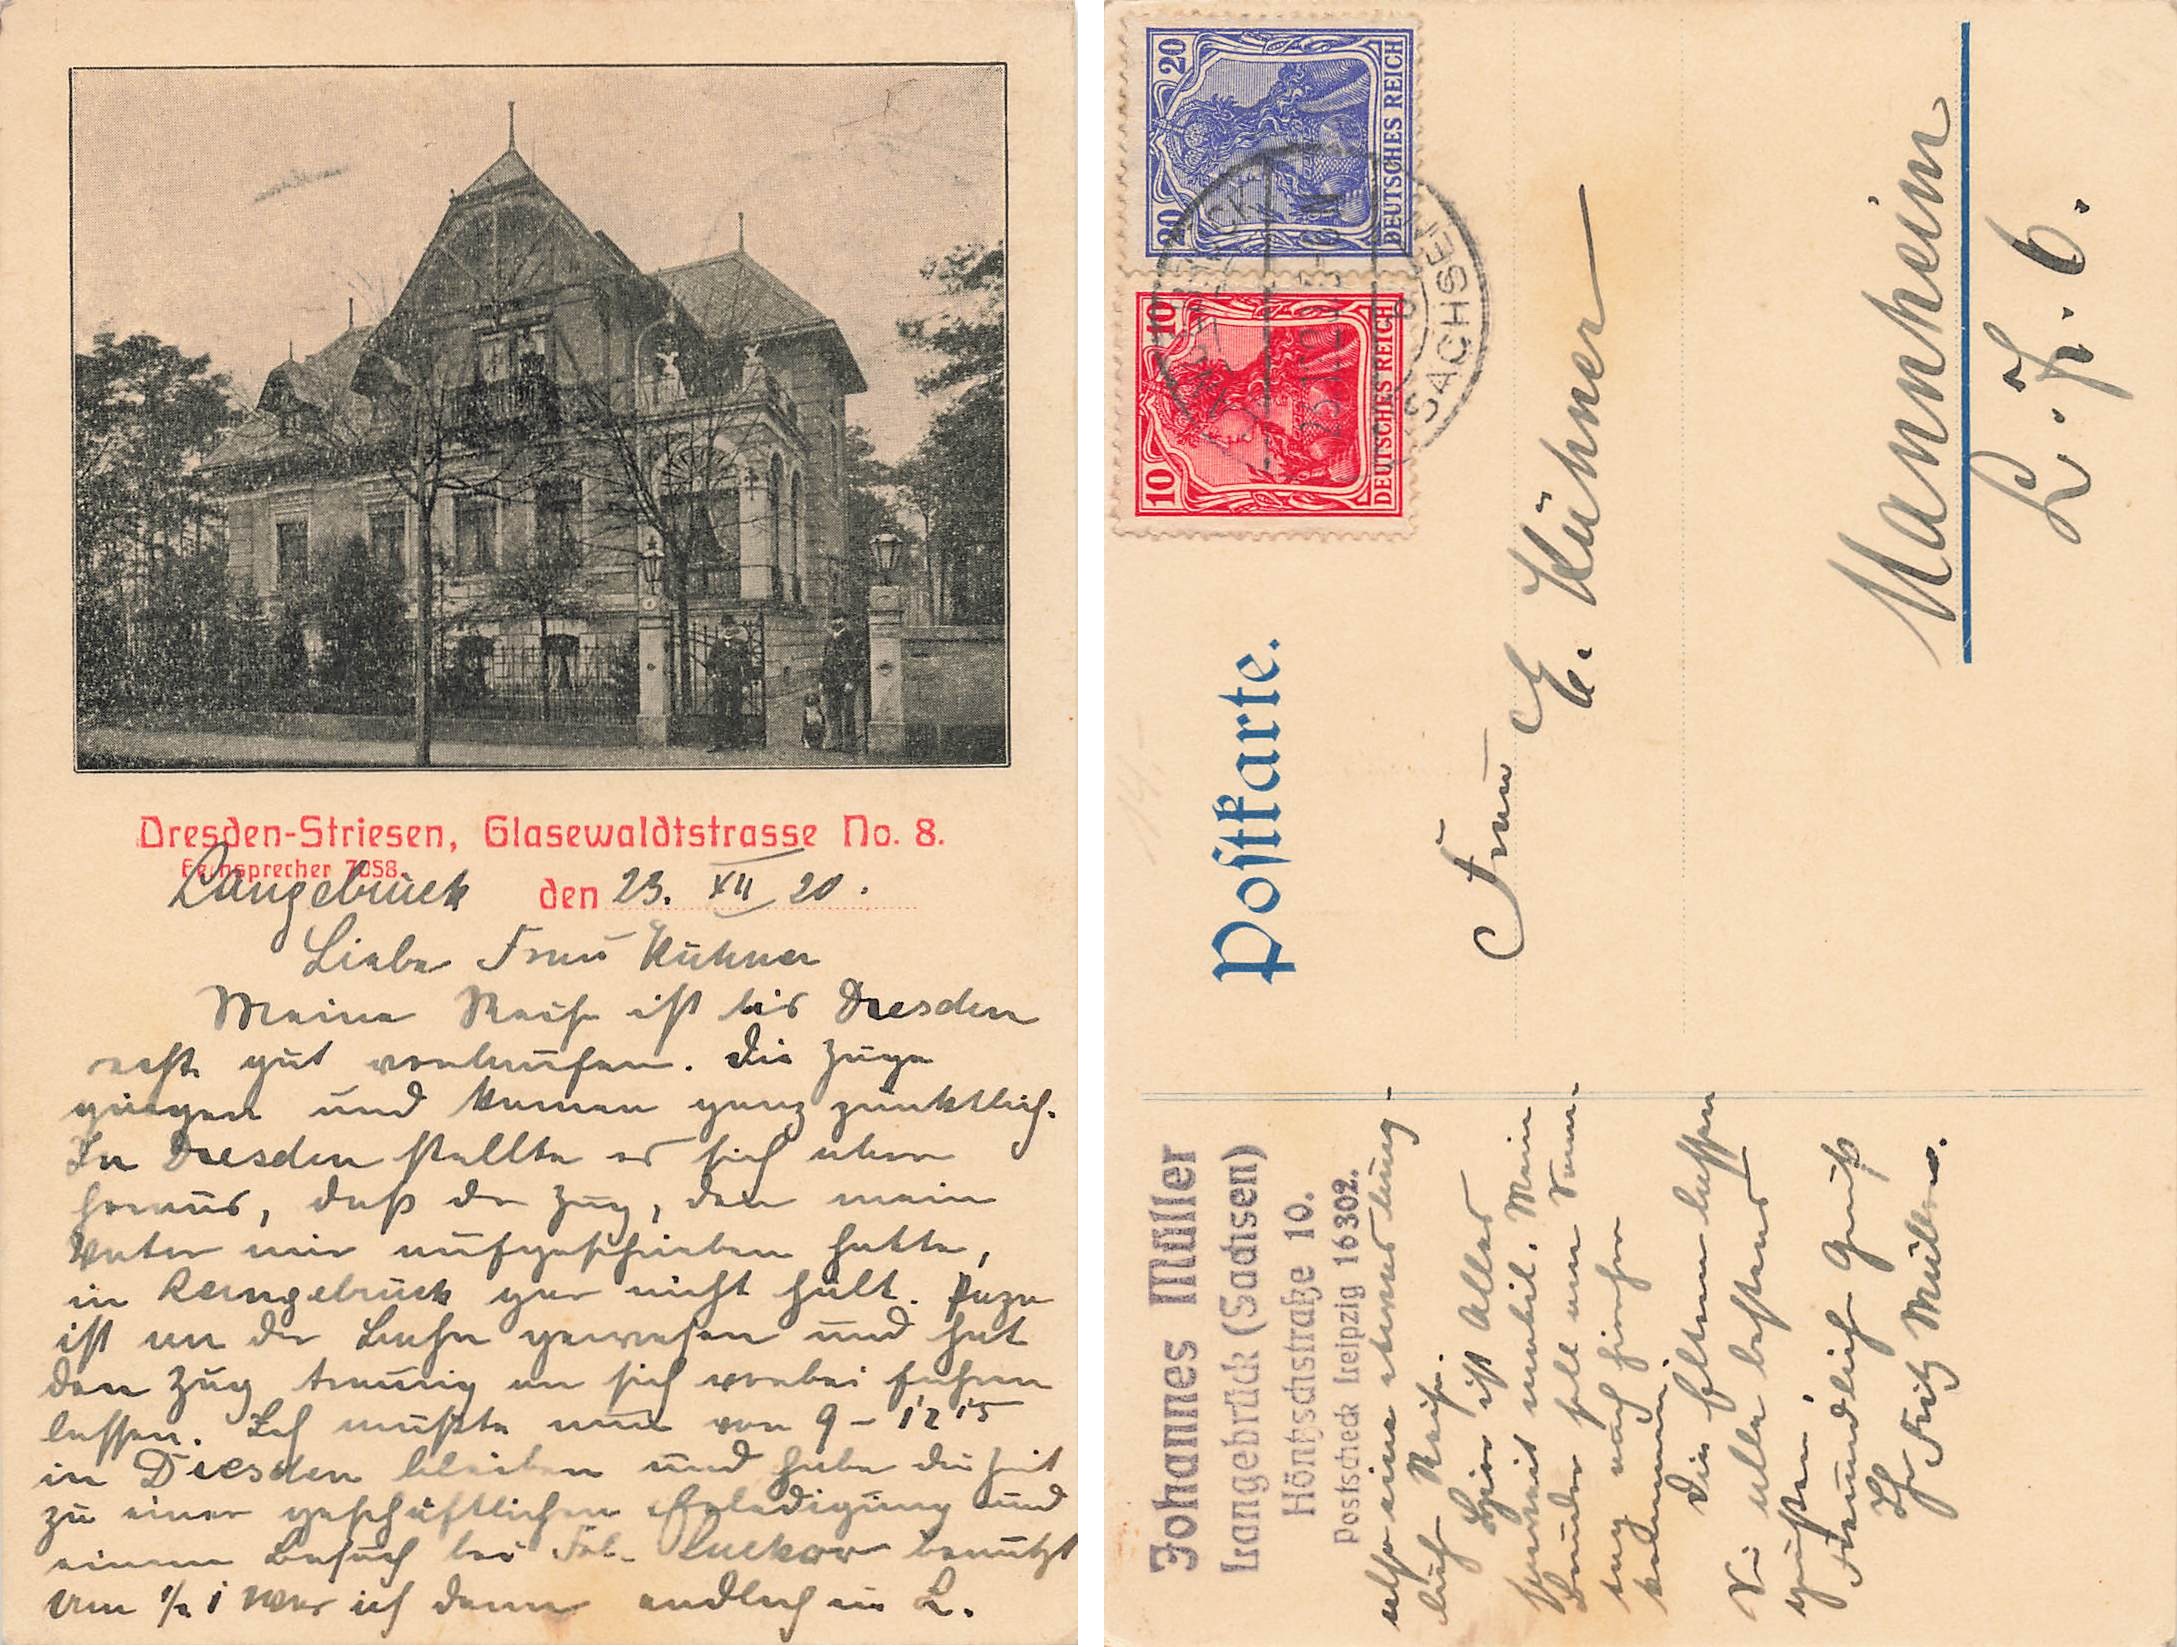 Dresden-Striesen, Glasewaldtstrasse No. 8.
Fernsprecher 7058.
Langebrück den 23. XII 20.
Liebe Frau Kühner
Meine Reise ist bis Dresden
recht gut verlaufen. Die Züge
gingen und kamen ganz pünktlich.
In Dresden stellte es sich aber
heraus, daß der Zug, den mein
Vater mir aufgeschrieben hatte,
in Langebrück gar nicht hält.
ist an der Bahn gewesen und hat
den Zug traurig an sich vorbei fahren
lassen. Ich mußte nun von 9 - 12 15
in Dresden bleiben und habe die Zeit
zu einer geschäftlichen Erledigung und
einem Besuch bei Frl. benützt
Um 1/2 1 war ich dann endlich in L.
Postkarte.
20 20 DEUTSCHES REICH
10 10 DEUTSCHES REICH
SACHSEN
Frau E. Kühner
Mannheim
L.7.6.
Johannes Müller
Langebrück (Sachsen)
Höntzschstraße 10.
Postscheck Leipzig 16302.
also eine etwas lang-
liche Reise.
Hier ist Alles
soweit mobil. Mein
Bruder soll am Sonn-
tag nach hierher
kommen.
Die Eltern lassen
Sie alle bestens
grüßen.
Freundlich Gruß
Ihr Fritz Müller.